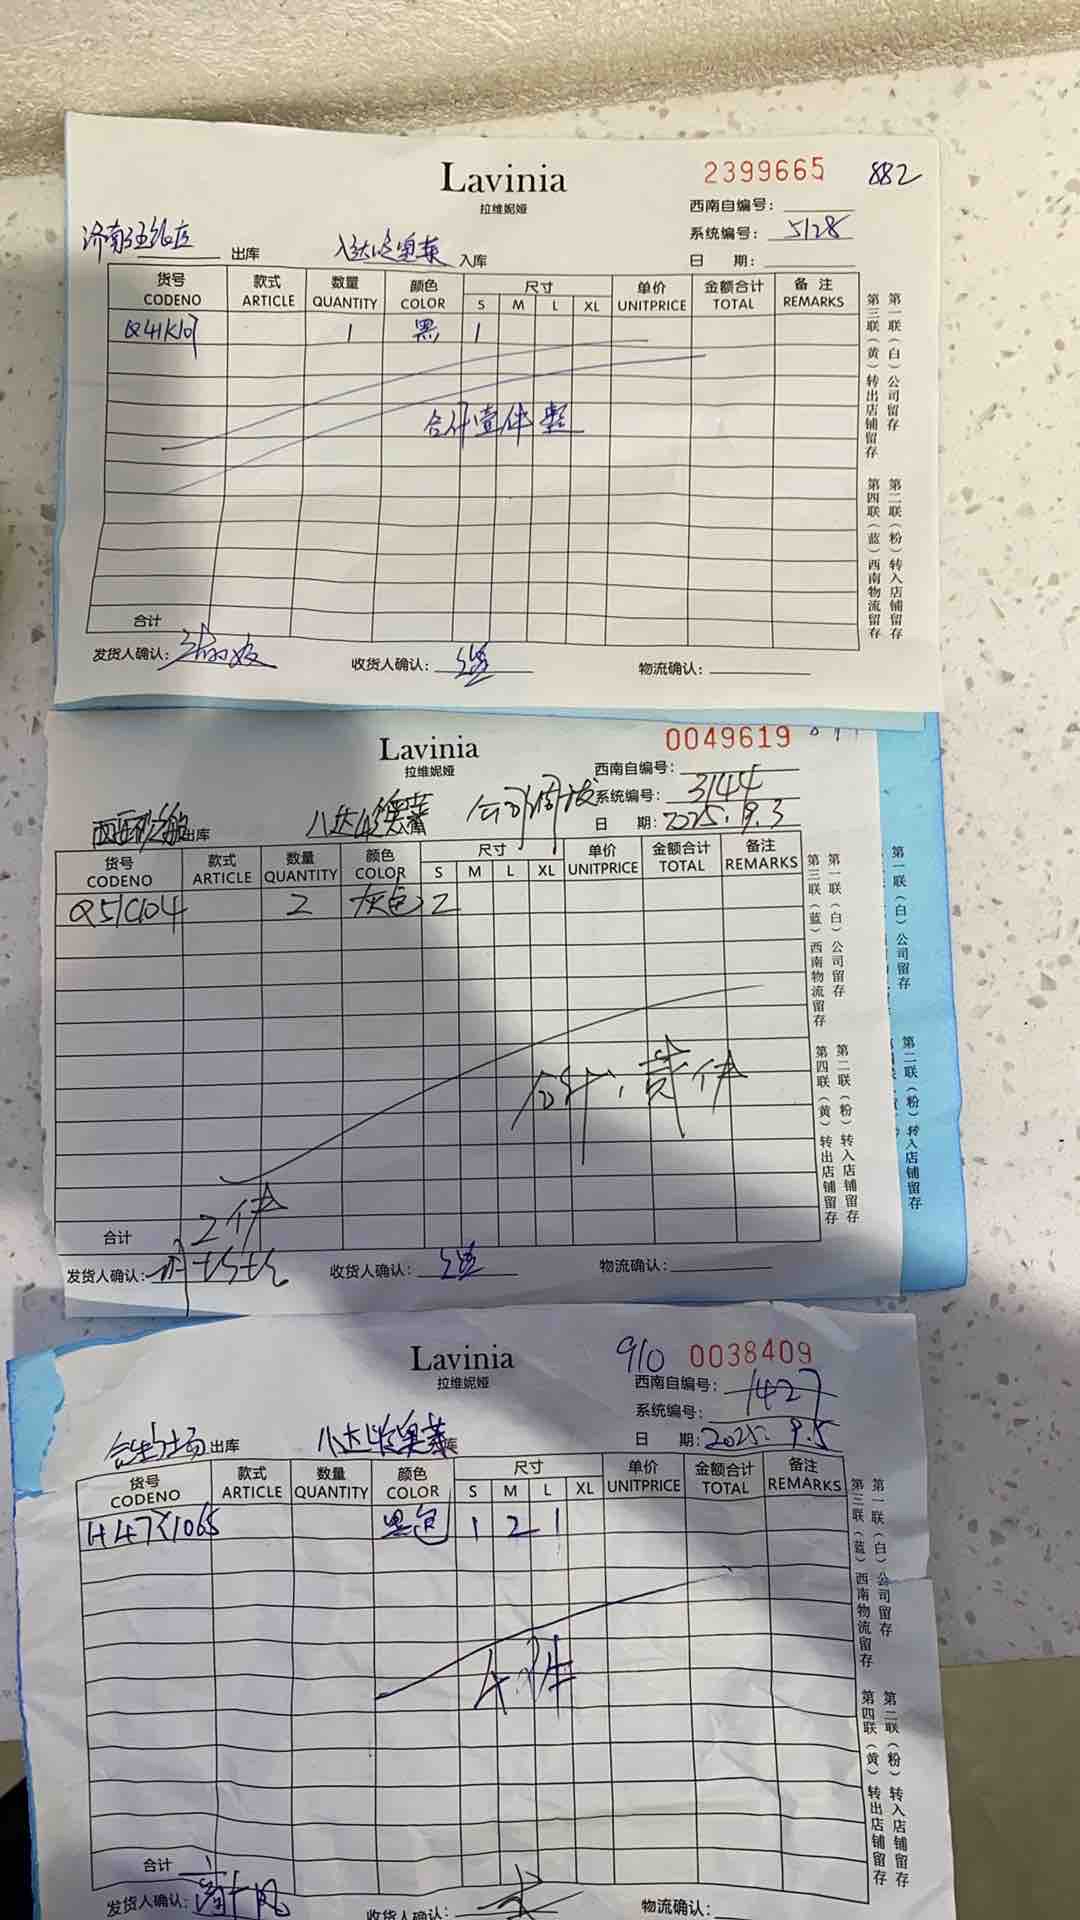 Lavinia
拉维妮娅
2399665 882
西南自编号：
系统编号： 5128
日 期：
出库 八达岭奥莱 入库
货号 款式 数量 颜色 尺寸 单价 金额合计 备注
CODENO ARTICLE QUANTITY COLOR S M L XL UNITPRICE TOTAL REMARKS
1 黑 1
合计壹件整
合计
发货人确认： 收货人确认： 物流确认：
第一联（白）公司留存
第三联（黄）转出店铺留存
第二联（粉）转入店铺留存
第四联（蓝）西南物流留存
Lavinia
拉维妮娅
0049619
西南自编号：
系统编号： 3144
日 期： 2025.9.3
出库 八达岭奥莱
货号 款式 数量 颜色 尺寸 单价 金额合计 备注
CODENO ARTICLE QUANTITY COLOR S M L XL UNITPRICE TOTAL REMARKS
Q51C104 2 灰色 2
合计：贰件
合计 2件
发货人确认： 收货人确认： 物流确认：
第一联（白）公司留存
第三联（蓝）西南物流留存
第二联（粉）转入店铺留存
第四联（黄）转出店铺留存
第一联（白）公司留存
第二联（粉）转入店铺留存
Lavinia
拉维妮娅
910 0038409
西南自编号： 1427
系统编号：
日 期： 2025.9.5
出库 八达岭奥莱 库
货号 款式 数量 颜色 尺寸 单价 金额合计 备注
CODENO ARTICLE QUANTITY COLOR S M L XL UNITPRICE TOTAL REMARKS
黑色 1 2 1
4件
合计
发货人确认： 收货人确认： 物流确认：
第一联（白）公司留存
第三联（蓝）西南物流留存
第二联（粉）转入店铺留存
第四联（黄）转出店铺留存